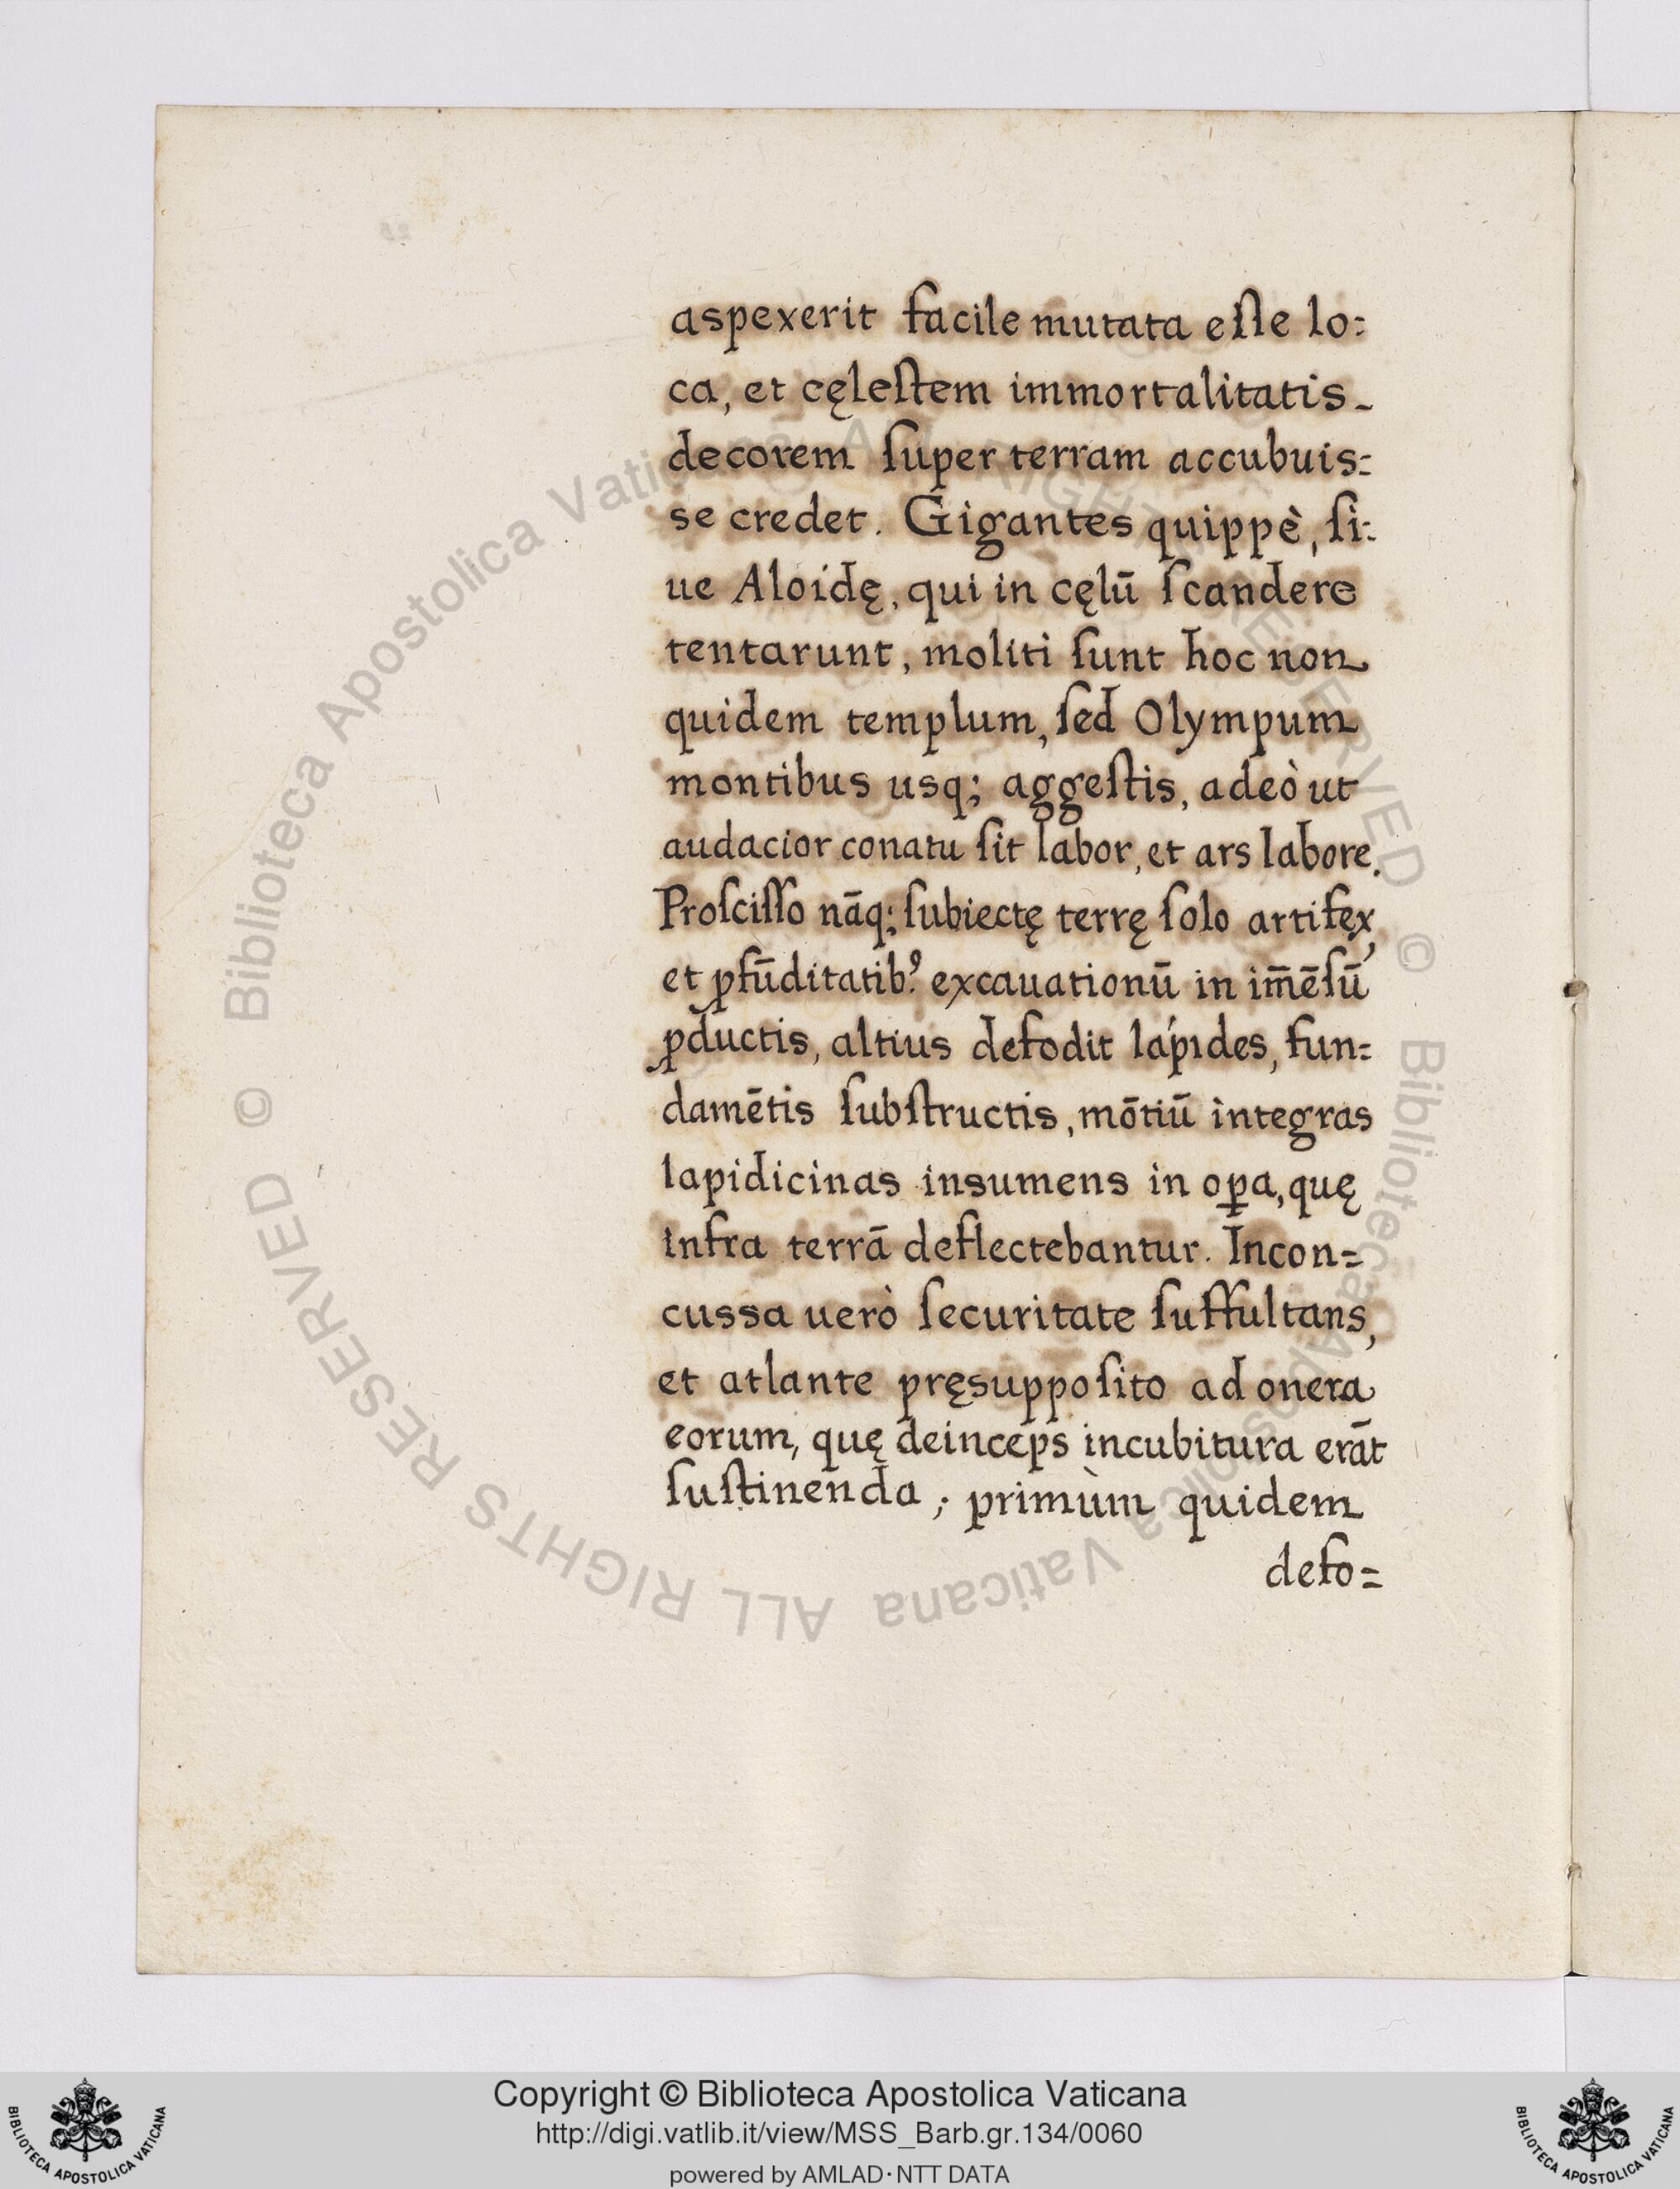 aspexerit facile mutata eſſe lo:
ca, et cęleſtem immortalitatis
decorem ſuper terram accubuis:
se credet. Gigantes quippè, ſi:
ue Aloidę, qui in cęlū ſcandere
tentarunt, moliti ſunt hoc non
quidem templum, ſed Olympum
montibus usq; aggeſtis, adeò ut
audacior conatu ſit labor, et ars labore.
Proſciſſo nāq; ſubiectę terrę ſolo artifex,
et ꝓfūditatib⁹ excauationū in im̄ēſū
ꝓductis, altius defodit lápides, fun=
damētis ſubſtructis, mōtiū integras
lapidicinas insumens in oꝑa, quę
infra terrā deflectebantur. Incon=
cussa uerò ſecuritate ſuffultans,
et atlante pręsuppoſito ad onera
eorum, quę deinceps incubitura erāt
ſuſtinenda; primùm quidem
defo=
© Biblioteca Apostolica Vaticana ALL RIGHTS RESERVED © Biblioteca Apostolica Vaticana ALL RIGHTS RESERVED
Copyright © Biblioteca Apostolica Vaticana
http://digi.vatlib.it/view/MSS_Barb.gr.134/0060
powered by AMLAD·NTT DATA
BIBLIOTECA APOSTOLICA VATICANA
BIBLIOTECA APOSTOLICA VATICANA